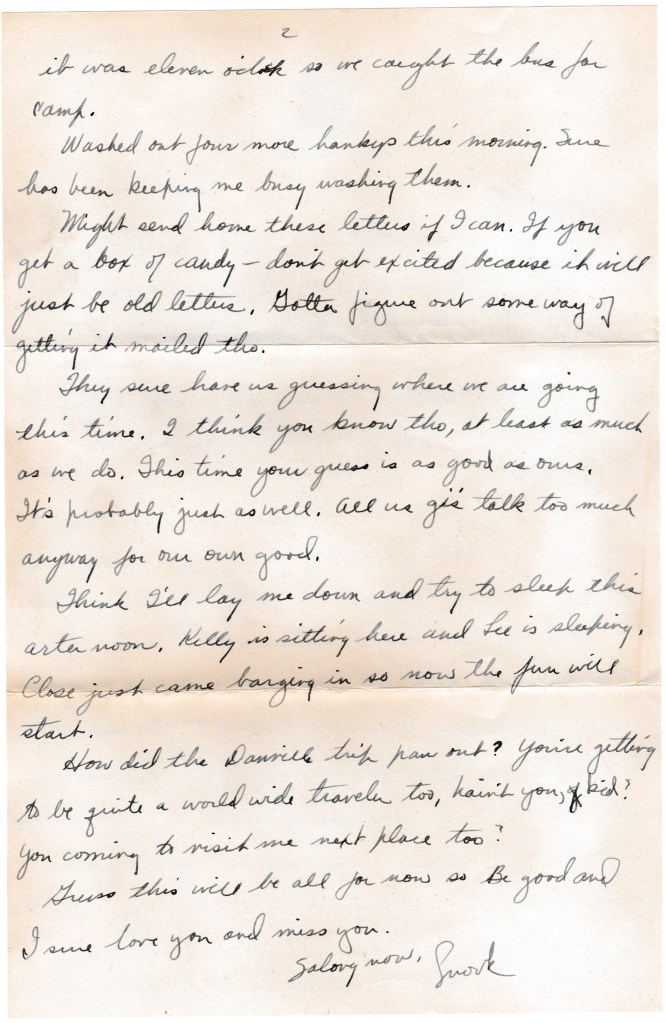 2
it was eleven o'clock so we caught the bus for
camp.
Washed out four more hankys this morning. Sure
has been keeping me busy washing them.
Might send home these letters if I can. If you
get a box of candy – don't get excited because it will
just be old letters. Gotta figure out some way of
gettin'g it mailed tho.
They sure have us guessing where we are going
this time. I think you know tho, at least as much
as we do. This time your guess is as good as ours.
It's probably just as well. All us gi's talk too much
anyway for our own good.
Think I'll lay me down and try to sleep this
arter noon. Kelly is sittin'g here and Lee is sleeping.
Close just came barging in so now the fun will
start.
How did the Danville trip pan out? You're getting
to be quite a world wide traveler too, hain't you, kid?
You coming to visit me next place too?
Guess this will be all for now so Be good and
I sure love you and miss you.
Salong now, Snook